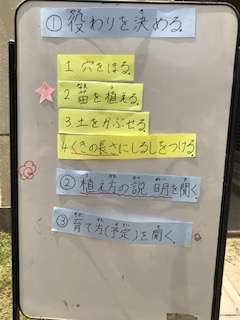 ① 役わりを決める。
1 穴をほる。
2 苗を植える。
3 土をかぶせる。
4 くきの長さにしるしをつける。
② 植え方の説明を聞く。
③ 育て方(予定)を聞く。